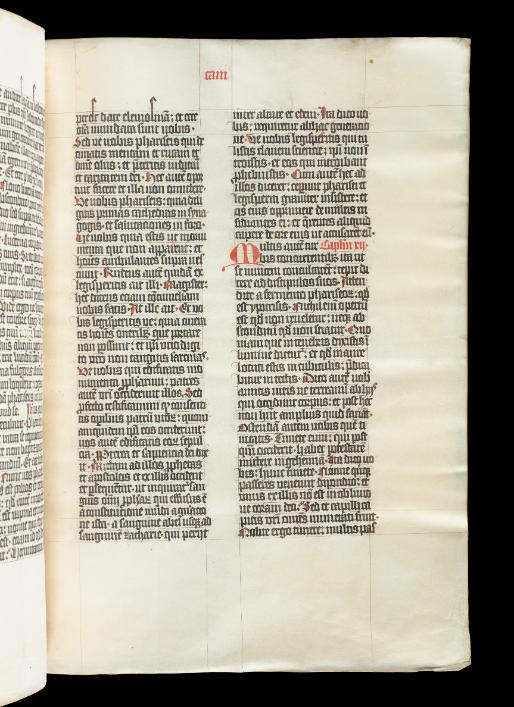 cam
perest date elemosinā; et ecce
oīa munda sunt vobis.
Sed ve vobis phariseis quia de
cimatis mentam et rutam et
omne olus; et pteritis iudiciū
et caritatem dei. Hec autē opor
tuit facere et illa non omittere.
Ve vobis phariseis; quia dili
gitis primas cathedras in syna
gogis; et salutationes in foro.
Ve vobis quia estis ut monu
menta que non apparent; et
hoīes ambulantes supra nes
ciunt. Respondens autē quidā ex
legisperitis ait illi. Magister;
hec dicens etiam cōtumeliam
nobis facis. At ille ait. Et vo
bis legisperitis ve; quia onera
tis hoīes oneribus que portare
non possunt; et ipsi uno digi
to vrō non tangitis sarcinas.
Ve vobis qui edificatis mo
numenta ppharum; patres
autē vri occiderunt illos. Sed
pfecto testificamini qd consenti
tis opibus patrū vrōr; quoniā
quidem ipsi eos occiderunt;
vos autē edificatis eorū sepul
cra. Propterea et sapientia dei dix
it. Mittam ad illos pphetas
et apostolos et ex illis occident
et psequentur. ut inquiratur san
guis oīm ppharū qui effusus ē
a constitutione mūdi a gnāto
ne ista. a sanguine abel usqʒ ad
sanguinē zacharie. qui perijt
inter altare et edem. Ita dico vo
bis; requiretur ab hac generatio
ne. Ve vobis legisperitis qui tu
listis clavem sciencie; ipsi non i
troistis. et eos qui introibant
phibuistis. Cum autē hec ad
illos diceret; ceperunt pharisei et
legisperiti graviter insistere; et
os eius opprimere de multis in
sidiantes ei; et querentes aliquid
capere de ore eius ut accusarēt eū.
Multis autē tur Caplm xij.
bis concurrentibus. ita ut
se invicem conculcarent; cepit di
cere ad discipulos suos. Atten
dite a fermento phariseor; qd
est ypocrisis. Nichil enī opertū
est qd non reveletur; neqʒ ab
sconditū qd non sciatur. Quo
niam que in tenebris dixistis i
lumine dicentur; et qd in aure
locuti estis in cubiculis; pdica
bitur in tectis. Dico autē vobis
amicis meis ne terreamī ab hijs
qui occidunt corpus; et post hec
non habēt amplius quid faciāt.
Ostendā autem vobis quē ti
meatis. Timete eum; qui post
quā occiderit. habet potestatē
mittere in gehennā. Ita dico vo
bis; hunc timete. Nonne quinqʒ
passeres veneunt dipondio; et
unus ex illis nō est in oblivio
ne coram deo. Sed et capilli ca
pitis vri omēs numerati sunt.
Nolite ergo timere; multis pas